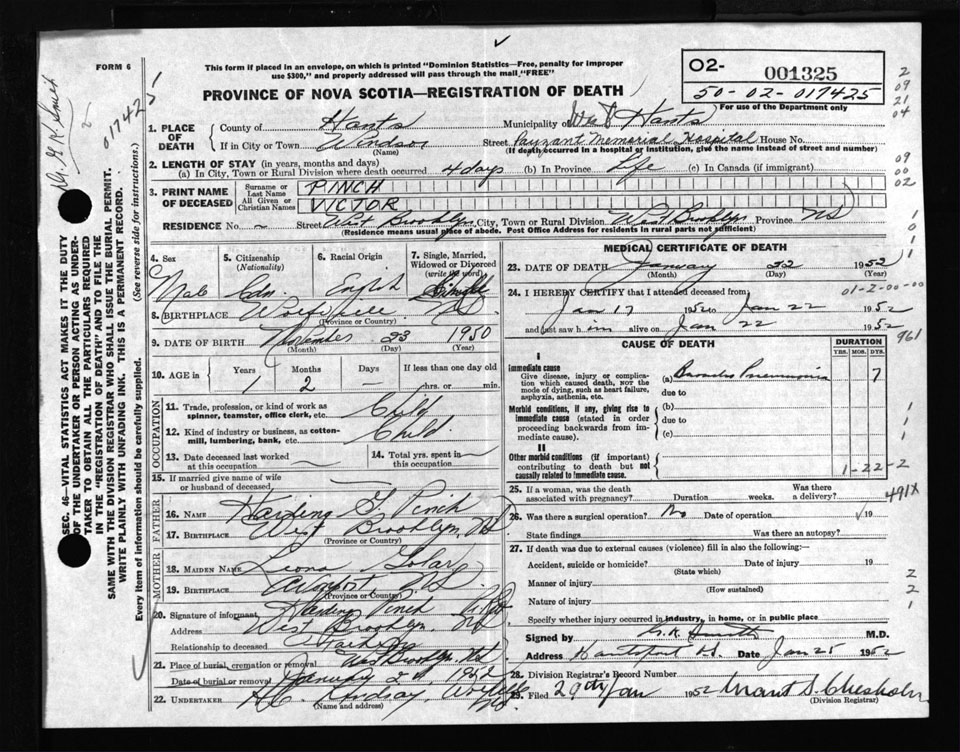 FORM 6
This form if placed in an envelope, on which is printed "Dominion Statistics—Free, penalty for improper
use $300," and properly addressed will pass through the mail "FREE"
PROVINCE OF NOVA SCOTIA—REGISTRATION OF DEATH
O2- 001325
50-02-017425
For use of the Department only
017425
2
09
21
04
1. PLACE OF DEATH
County of Hants Municipality of West Hants
If in City or Town Windsor Street Payzant Memorial Hospital House No.
(Name) (If death occurred in a hospital or institution, give the name instead of street and number)
2. LENGTH OF STAY (in years, months and days)
(a) In City, Town or Rural Division where death occurred 4 days (b) In Province Life (c) In Canada (if immigrant)
09
00
02
3. PRINT NAME OF DECEASED
Surname or Last Name PINCH
All Given or Christian Names VICTOR
RESIDENCE No. Street West Brooklyn City, Town or Rural Division West Brooklyn Province NS
(Residence means usual place of abode. Post Office Address for residents in rural parts not sufficient)
SEC. 46—VITAL STATISTICS ACT MAKES IT THE DUTY
OF THE UNDERTAKER OR PERSON ACTING AS UNDER-
TAKER TO OBTAIN ALL THE PARTICULARS REQUIRED
IN THE "REGISTRATION OF DEATH" AND TO FILE THE
SAME WITH THE DIVISION REGISTRAR WHO SHALL ISSUE THE BURIAL PERMIT.
WRITE PLAINLY WITH UNFADING INK. THIS IS A PERMANENT RECORD.
Every item of information should be carefully supplied. (See reverse side for instructions.)
4. Sex
Male
5. Citizenship (Nationality)
Cdn.
6. Racial Origin
English
7. Single, Married, Widowed or Divorced (write the word)
Single
8. BIRTHPLACE Wolfville NS
(Province or Country)
9. DATE OF BIRTH November 23 1950
(Month) (Day) (Year)
10. AGE in Years Months Days If less than one day old
1 2 — hrs. or min.
OCCUPATION
11. Trade, profession, or kind of work as
spinner, teamster, office clerk, etc. Child
12. Kind of industry or business, as cotton-
mill, lumbering, bank, etc. Child
13. Date deceased last worked at this occupation
14. Total yrs. spent in this occupation
15. If married give name of wife
or husband of deceased
FATHER
16. NAME Harding G Pinch
17. BIRTHPLACE West Brooklyn, NS
(Province or Country)
MOTHER
18. MAIDEN NAME Leona
19. BIRTHPLACE
(Province or Country)
20. Signature of informant Harding Pinch
Address West Brooklyn, NS
Relationship to deceased Father
21. Place of burial, cremation or removal West Brooklyn, NS
Date of burial or removal January 1952
22. UNDERTAKER H.C. Lindsay Wolfville NS
(Name and address)
MEDICAL CERTIFICATE OF DEATH
23. DATE OF DEATH January 22 1952
(Month) (Day) (Year)
24. I HEREBY CERTIFY that I attended deceased from
01-2-00-00
Jan 17 1952 to Jan 22 1952
and last saw him alive on Jan 22 1952
961
CAUSE OF DEATH
DURATION
YRS. MOS. DYS.
I
Immediate cause
Give disease, injury or complica-
tion which caused death, NOT the
mode of dying, such as heart failure,
asphyxia, asthenia, etc.
(a) Broncho Pneumonia 7
due to
Morbid conditions, if any, giving rise to
immediate cause (stated in order
proceeding backwards from im-
mediate cause).
(b)
due to
(c)
II
Other morbid conditions (if important)
contributing to death but not
causally related to immediate cause.
1-22-2
25. If a woman, was the death
associated with pregnancy? Duration weeks. Was there a delivery?
491X
26. Was there a surgical operation? No Date of operation 19
State findings Was there an autopsy?
27. If death was due to external causes (violence) fill in also the following:—
Accident, suicide or homicide? Date of injury 19
(State which)
Manner of injury
(How sustained)
Nature of injury
Specify whether injury occurred in industry, in home, or in public place
2
2
1
Signed by G. K. Smith M.D.
Address Hantsport NS Date Jan 25 1952
28. Division Registrar's Record Number
29. Filed 29th Jan 1952 Grant S. Chisholm
(Division Registrar)